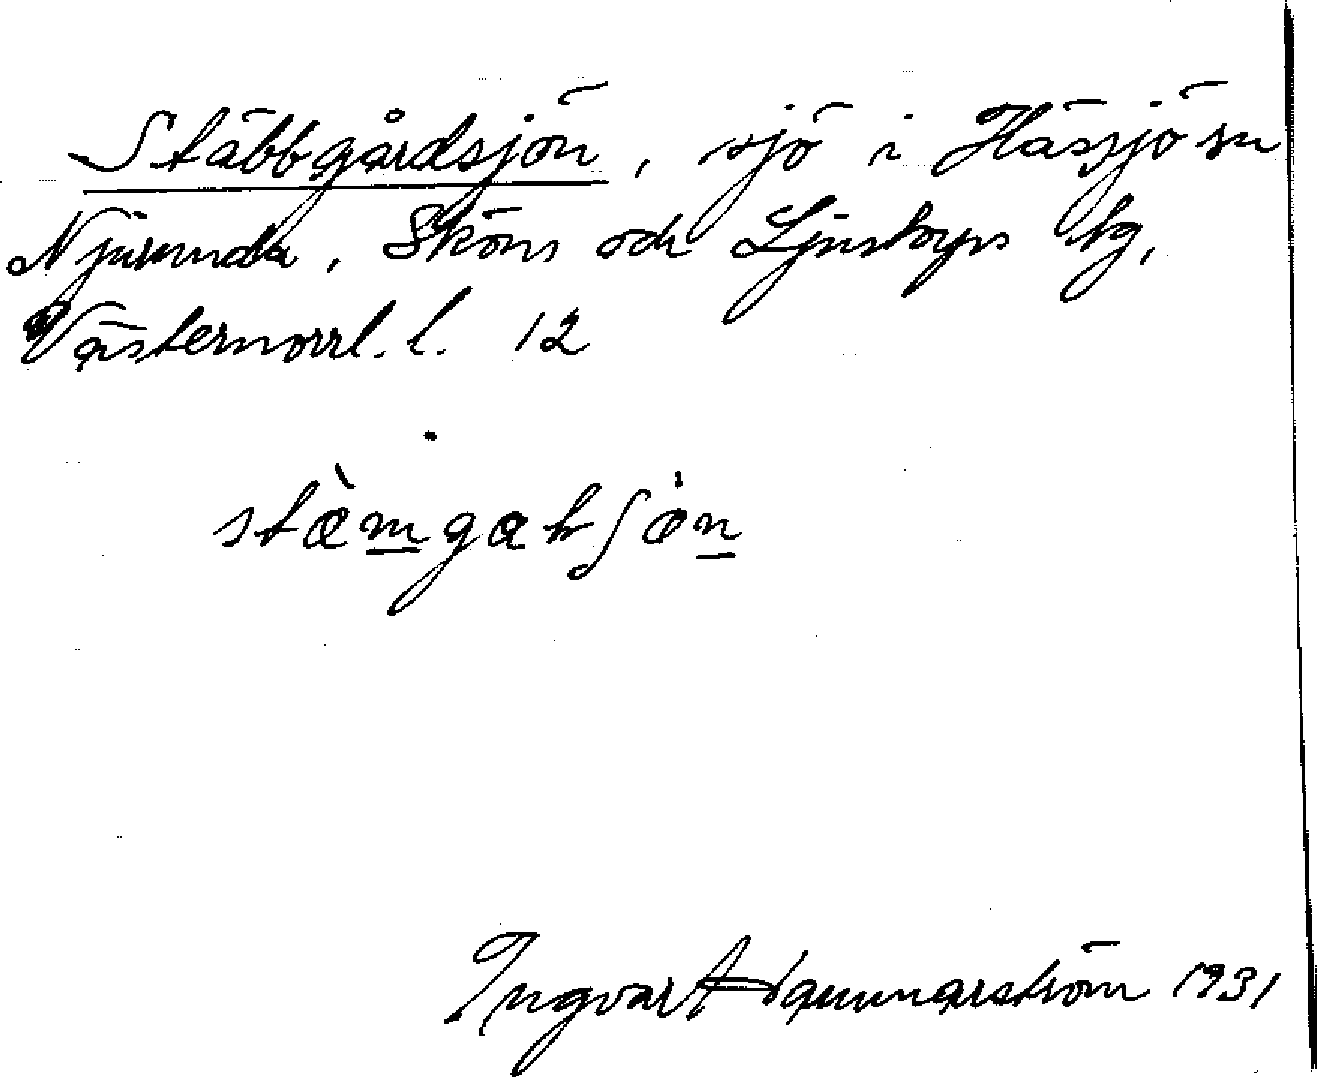 Stäbbgårdsjön, sjö i Hässjö sn
Njurunda, Sköns och Ljustorps tg,
Västernorrl. l. 12
stæ̀mgaʈʃön
Ingvar Hammarström 1931